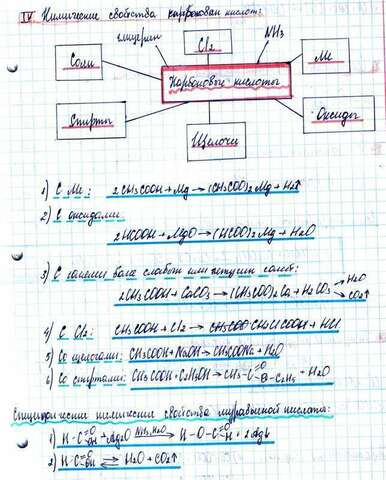 IV Химические свойства карбонован кислот:
глицерин
Cl2
NH3
Соли
Ме
Карбоновые кислоты
Спирты
Оксиды
Щелочи
1) С Ме: 2CH3COOH + Mg → (CH3COO)2Mg + H2↑
2) С оксидами
2HCOOH + MgO → (HCOO)2Mg + H2O
3) С солями боле слабых или летучих солей:
2CH3COOH + CaCO3 → (CH3COO)2Ca + H2CO3
H2O
CO2↑
4) С Cl2: CH3COOH + Cl2 → CH3COO CH2ClCOOH + HCl
5) Со щелочами: CH3COOH + NaOH → CH3COONa + H2O
6) Со спиртами: CH3COOH + C2H5OH → CH3-C=O O-C2H5 + H2O
Специфические химические свойства муравьиной кислоты:
1) H-C=O OH + Ag2O NH3, H2O → H-O-C=O H + 2Ag↓
2) H-C=O OH ⇄ H2O + CO2↑